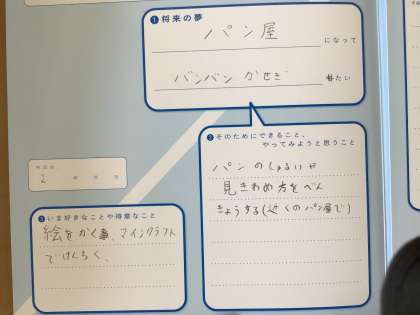 ❶将来の夢
パン屋
になって
バンバン かせぎ
たい
❷そのためにできること、
やってみようと思うこと
パン のしゅるいや
見きわめ方をべん
きょうする(近くのパン屋で)
❸いま好きなことや得意なこと
絵をかく事、マインクラフト
でけんちく、